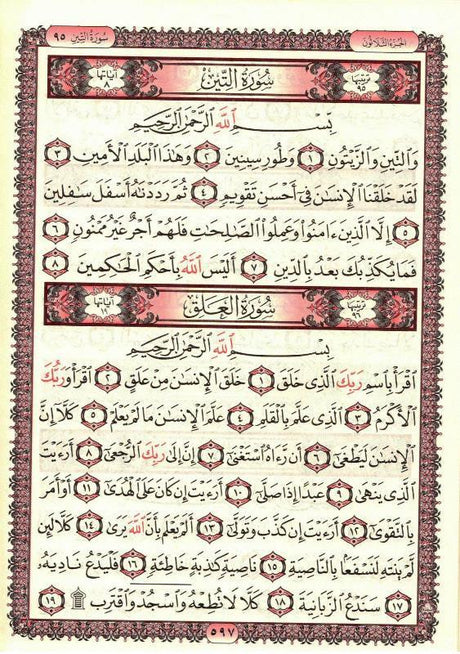 سُورَةُ التِّينِ ٩٥
الجُزءُ الثَّلَاثُونَ
آيَاتُهَا ٨ سُورَةُ التِّينِ تَرتِيبُهَا ٩٥
بِسْمِ ٱللَّهِ ٱلرَّحْمَٰنِ ٱلرَّحِيمِ
وَٱلتِّينِ وَٱلزَّيْتُونِ ١ وَطُورِ سِينِينَ ٢ وَهَٰذَا ٱلْبَلَدِ ٱلْأَمِينِ ٣
لَقَدْ خَلَقْنَا ٱلْإِنسَٰنَ فِىٓ أَحْسَنِ تَقْوِيمٍ ٤ ثُمَّ رَدَدْنَٰهُ أَسْفَلَ سَٰفِلِينَ
٥ إِلَّا ٱلَّذِينَ ءَامَنُوا۟ وَعَمِلُوا۟ ٱلصَّٰلِحَٰتِ فَلَهُمْ أَجْرٌ غَيْرُ مَمْنُونٍ ٦
فَمَا يُكَذِّبُكَ بَعْدُ بِٱلدِّينِ ٧ أَلَيْسَ ٱللَّهُ بِأَحْكَمِ ٱلْحَٰكِمِينَ ٨
آيَاتُهَا ١٩ سُورَةُ العَلَقِ تَرتِيبُهَا ٩٦
بِسْمِ ٱللَّهِ ٱلرَّحْمَٰنِ ٱلرَّحِيمِ
ٱقْرَأْ بِٱسْمِ رَبِّكَ ٱلَّذِى خَلَقَ ١ خَلَقَ ٱلْإِنسَٰنَ مِنْ عَلَقٍ ٢ ٱقْرَأْ وَرَبُّكَ
ٱلْأَكْرَمُ ٣ ٱلَّذِى عَلَّمَ بِٱلْقَلَمِ ٤ عَلَّمَ ٱلْإِنسَٰنَ مَا لَمْ يَعْلَمْ ٥ كَلَّآ إِنَّ
ٱلْإِنسَٰنَ لَيَطْغَىٰٓ ٦ أَن رَّءَاهُ ٱسْتَغْنَىٰٓ ٧ إِنَّ إِلَىٰ رَبِّكَ ٱلرُّجْعَىٰٓ ٨ أَرَءَيْتَ
ٱلَّذِى يَنْهَىٰ ٩ عَبْدًا إِذَا صَلَّىٰٓ ١٠ أَرَءَيْتَ إِن كَانَ عَلَى ٱلْهُدَىٰٓ ١١ أَوْ أَمَرَ
بِٱلتَّقْوَىٰٓ ١٢ أَرَءَيْتَ إِن كَذَّبَ وَتَوَلَّىٰٓ ١٣ أَلَمْ يَعْلَم بِأَنَّ ٱللَّهَ يَرَىٰ ١٤ كَلَّا لَئِن
لَّمْ يَنتَهِ لَنَسْفَعًۢا بِٱلنَّاصِيَةِ ١٥ نَاصِيَةٍ كَٰذِبَةٍ خَاطِئَةٍ ١٦ فَلْيَدْعُ نَادِيَهُۥ
١٧ سَنَدْعُ ٱلزَّبَانِيَةَ ١٨ كَلَّا لَا تُطِعْهُ وَٱسْجُدْ وَٱقْتَرِب ۩ ١٩
٥٩٧